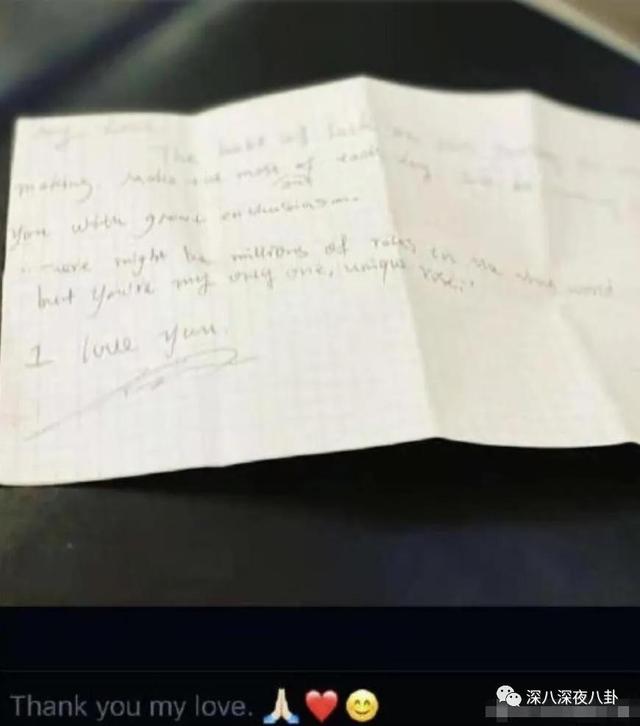 My love
The
making. Make out most of each day and
you with great enthusiasm.
"There might be millions of roses in the whole world
but you're my only one, unique rose."
I love you.
Thank you my love. 🙏🏻❤️😊
深八深夜八卦